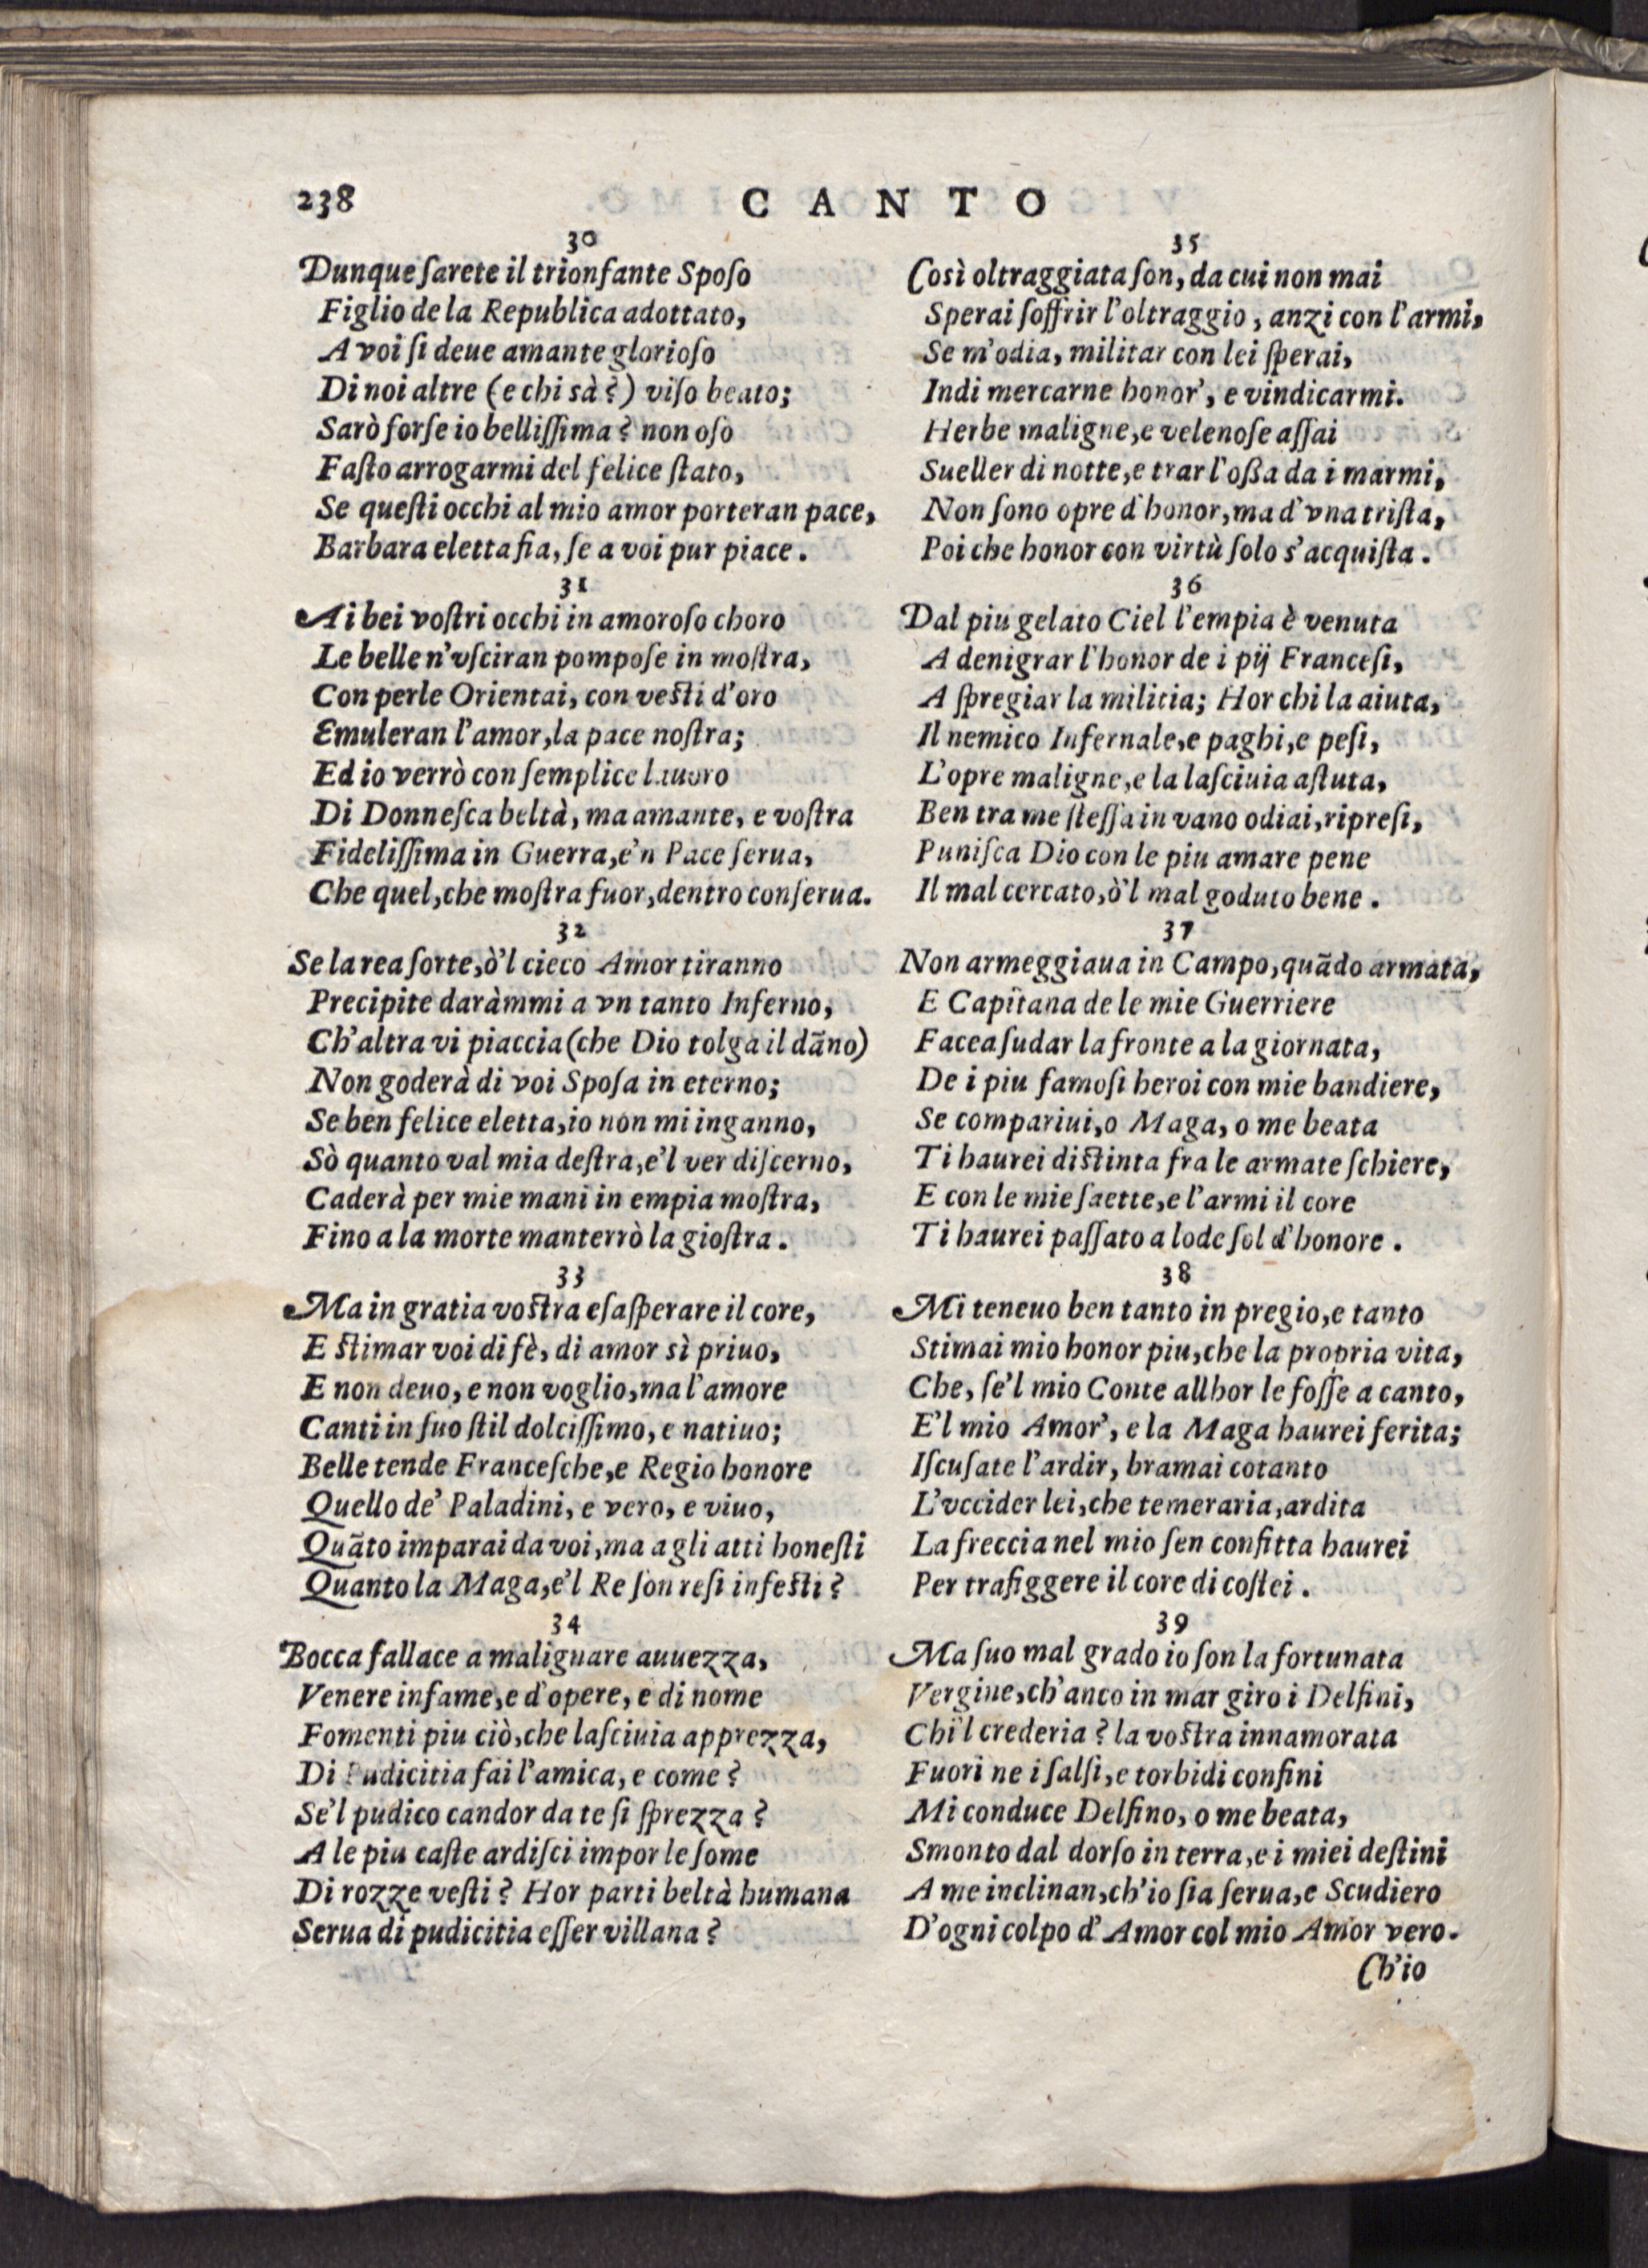 238
CANTO
30
Dunque ſarete il trionfante Spoſo
Figlio de la Republica adottato,
A voi ſi deue amante glorioſo
Di noi altre (e chi sà?) viſo beato;
Sarò forſe io belliſſima? non oſo
Faſto arrogarmi del felice ſtato,
Se queſti occhi al mio amor porteran pace,
Barbara eletta fia, ſe a voi pur piace.
31
Ai bei voſtri occhi in amoroſo choro
Le belle n'vſciran pompoſe in moſtra,
Con perle Orientai, con veſti d'oro
Emuleran l'amor, la pace noſtra;
Ed io verrò con ſemplice lauoro
Di Donneſca beltà, ma amante, e voſtra
Fideliſſima in Guerra, e'n Pace ſerua,
Che quel, che moſtra fuor, dentro conſerua.
32
Se la rea ſorte, ò'l cieco Amor tiranno
Precipite daràmmi a vn tanto Inferno,
Ch'altra vi piaccia (che Dio tolga il dāno)
Non goderà di voi Spoſa in eterno;
Se ben felice eletta, io non mi inganno,
Sò quanto val mia deſtra, e'l ver diſcerno,
Caderà per mie mani in empia moſtra,
Fino a la morte manterrò la gioſtra.
33
Ma in gratia voſtra eſaſperare il core,
E ſtimar voi di fè, di amor sì priuo,
E non deuo, e non voglio, ma l'amore
Canti in ſuo ſtil dolciſſimo, e natiuo;
Belle tende Franceſche, e Regio honore
Quello de' Paladini, e vero, e viuo,
Quāto imparai da voi, ma a gli atti honeſti
Quanto la Maga, e'l Re ſon reſi infeſti?
34
Bocca fallace a malignare auuezza,
Venere infame, e d'opere, e di nome
Fomenti piu ciò, che laſciuia apprezza,
Di Pudicitia fai l'amica, e come?
Se'l pudico candor da te ſi ſprezza?
A le piu caſte ardiſci impor le ſome
Di rozze veſti? Hor parti beltà humana
Serua di pudicitia eſſer villana?
35
Così oltraggiata ſon, da cui non mai
Sperai ſoffrir l'oltraggio, anzi con l'armi,
Se m'odia, militar con lei ſperai,
Indi mercarne honor', e vindicarmi.
Herbe maligne, e velenoſe aſſai
Sueller di notte, e trar l'oßa da i marmi,
Non ſono opre d'honor, ma d'vna triſta,
Poi che honor con virtù ſolo s'acquiſta.
36
Dal piu gelato Ciel l'empia è venuta
A denigrar l'honor de i pij Franceſi,
A ſpregiar la militia; Hor chi la aiuta,
Il nemico Infernale, e paghi, e peſi,
L'opre maligne, e la laſciuia aſtuta,
Ben tra me ſteſſa in vano odiai, ripreſi,
Puniſca Dio con le piu amare pene
Il mal cercato, ò'l mal goduto bene.
37
Non armeggiaua in Campo, quādo armata,
E Capitana de le mie Guerriere
Facea ſudar la fronte a la giornata,
De i piu famoſi heroi con mie bandiere,
Se compariui, o Maga, o me beata
Ti haurei diſtinta fra le armate ſchiere,
E con le mie ſaette, e l'armi il core
Ti haurei paſſato a lode ſol d'honore.
38
Mi teneuo ben tanto in pregio, e tanto
Stimai mio honor piu, che la propria vita,
Che, ſe'l mio Conte allhor le foſſe a canto,
E'l mio Amor', e la Maga haurei ferita;
Iſcuſate l'ardir, bramai cotanto
L'vccider lei, che temeraria, ardita
La freccia nel mio ſen confitta haurei
Per trafiggere il core di coſtei.
39
Ma ſuo mal grado io ſon la fortunata
Vergine, ch'anco in mar giro i Delfini,
Chi'l crederia? la voſtra innamorata
Fuori ne i ſalſi, e torbidi confini
Mi conduce Delfino, o me beata,
Smonto dal dorſo in terra, e i miei deſtini
A me inclinan, ch'io ſia ſerua, e Scudiero
D'ogni colpo d'Amor col mio Amor vero.
Ch'io